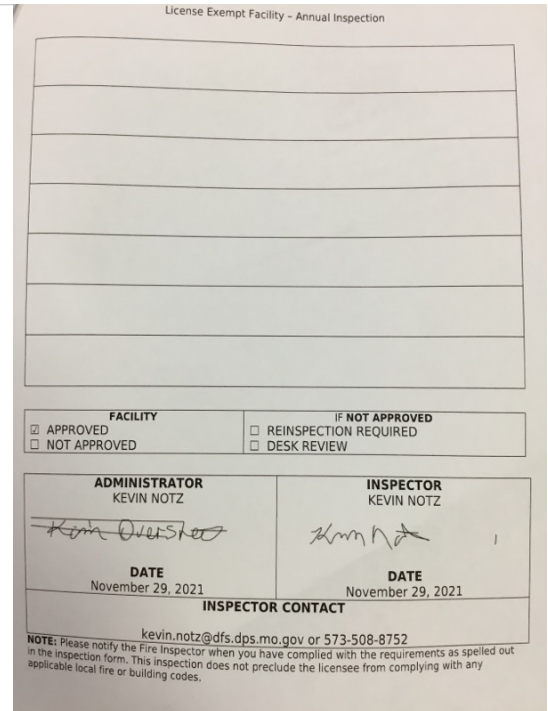 License Exempt Facility – Annual Inspection
FACILITY
☑ APPROVED
☐ NOT APPROVED
IF NOT APPROVED
☐ REINSPECTION REQUIRED
☐ DESK REVIEW
ADMINISTRATOR
KEVIN NOTZ
DATE
November 29, 2021
INSPECTOR
KEVIN NOTZ
DATE
November 29, 2021
INSPECTOR CONTACT
kevin.notz@dfs.dps.mo.gov or 573-508-8752
NOTE: Please notify the Fire Inspector when you have complied with the requirements as spelled out
in the inspection form. This inspection does not preclude the licensee from complying with any
applicable local fire or building codes.